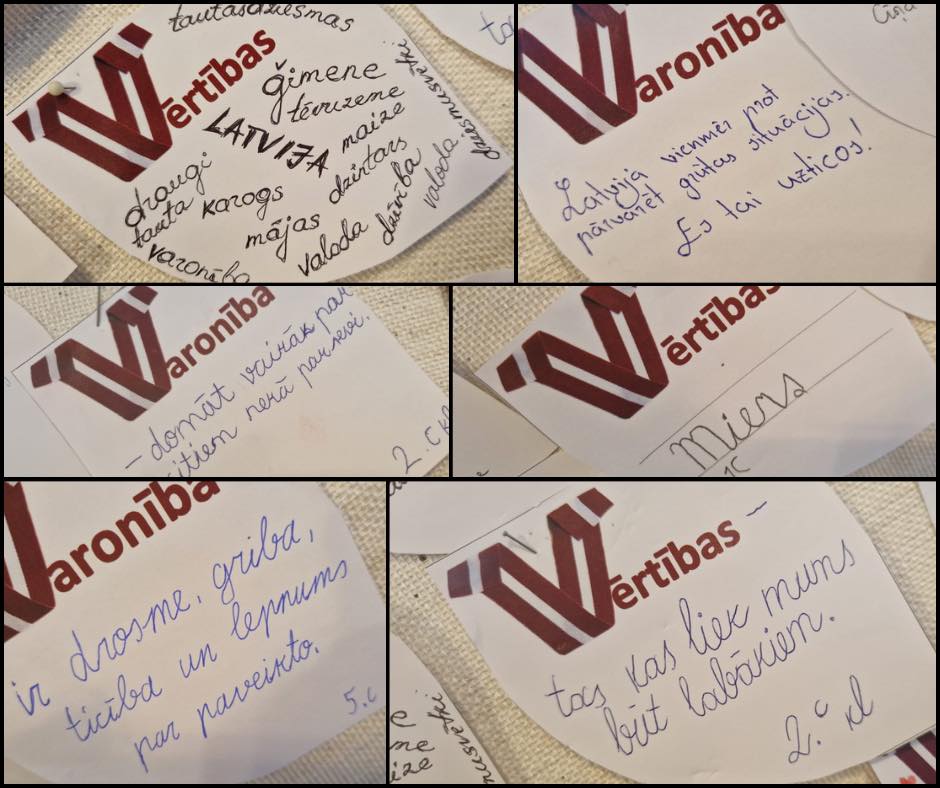 tautasdziesmas
Vērtības
ģimene
tēvzeme
LATVIJA
maize
dziesmusvētki
draugi
tauta karogs
dzintars
mājas
dzīvība
valoda
valoda
varonība
Varonība
Latvija vienmēr prot
pārvarēt grūtas situācijas.
Es tai uzticos!
Varonība
- domāt vairāk par
citiem nerā par sevi.
2. c kl
Vērtības
Miers
1C
Varonība
ir drosme, griba,
ticība un lepnums
par paveikto.
5.c
Vērtības -
tas kas liek mums
būt labākiem.
2. c kl